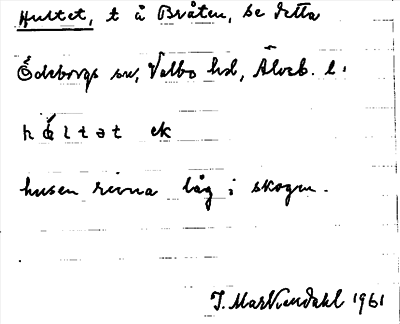 Hultet, t å Bråten, se detta
Ödeborgs sn, Valbo hd, Älvsb. l.
hǻltət ek
husen rivna låg i skogen.
J. Markendahl 1961